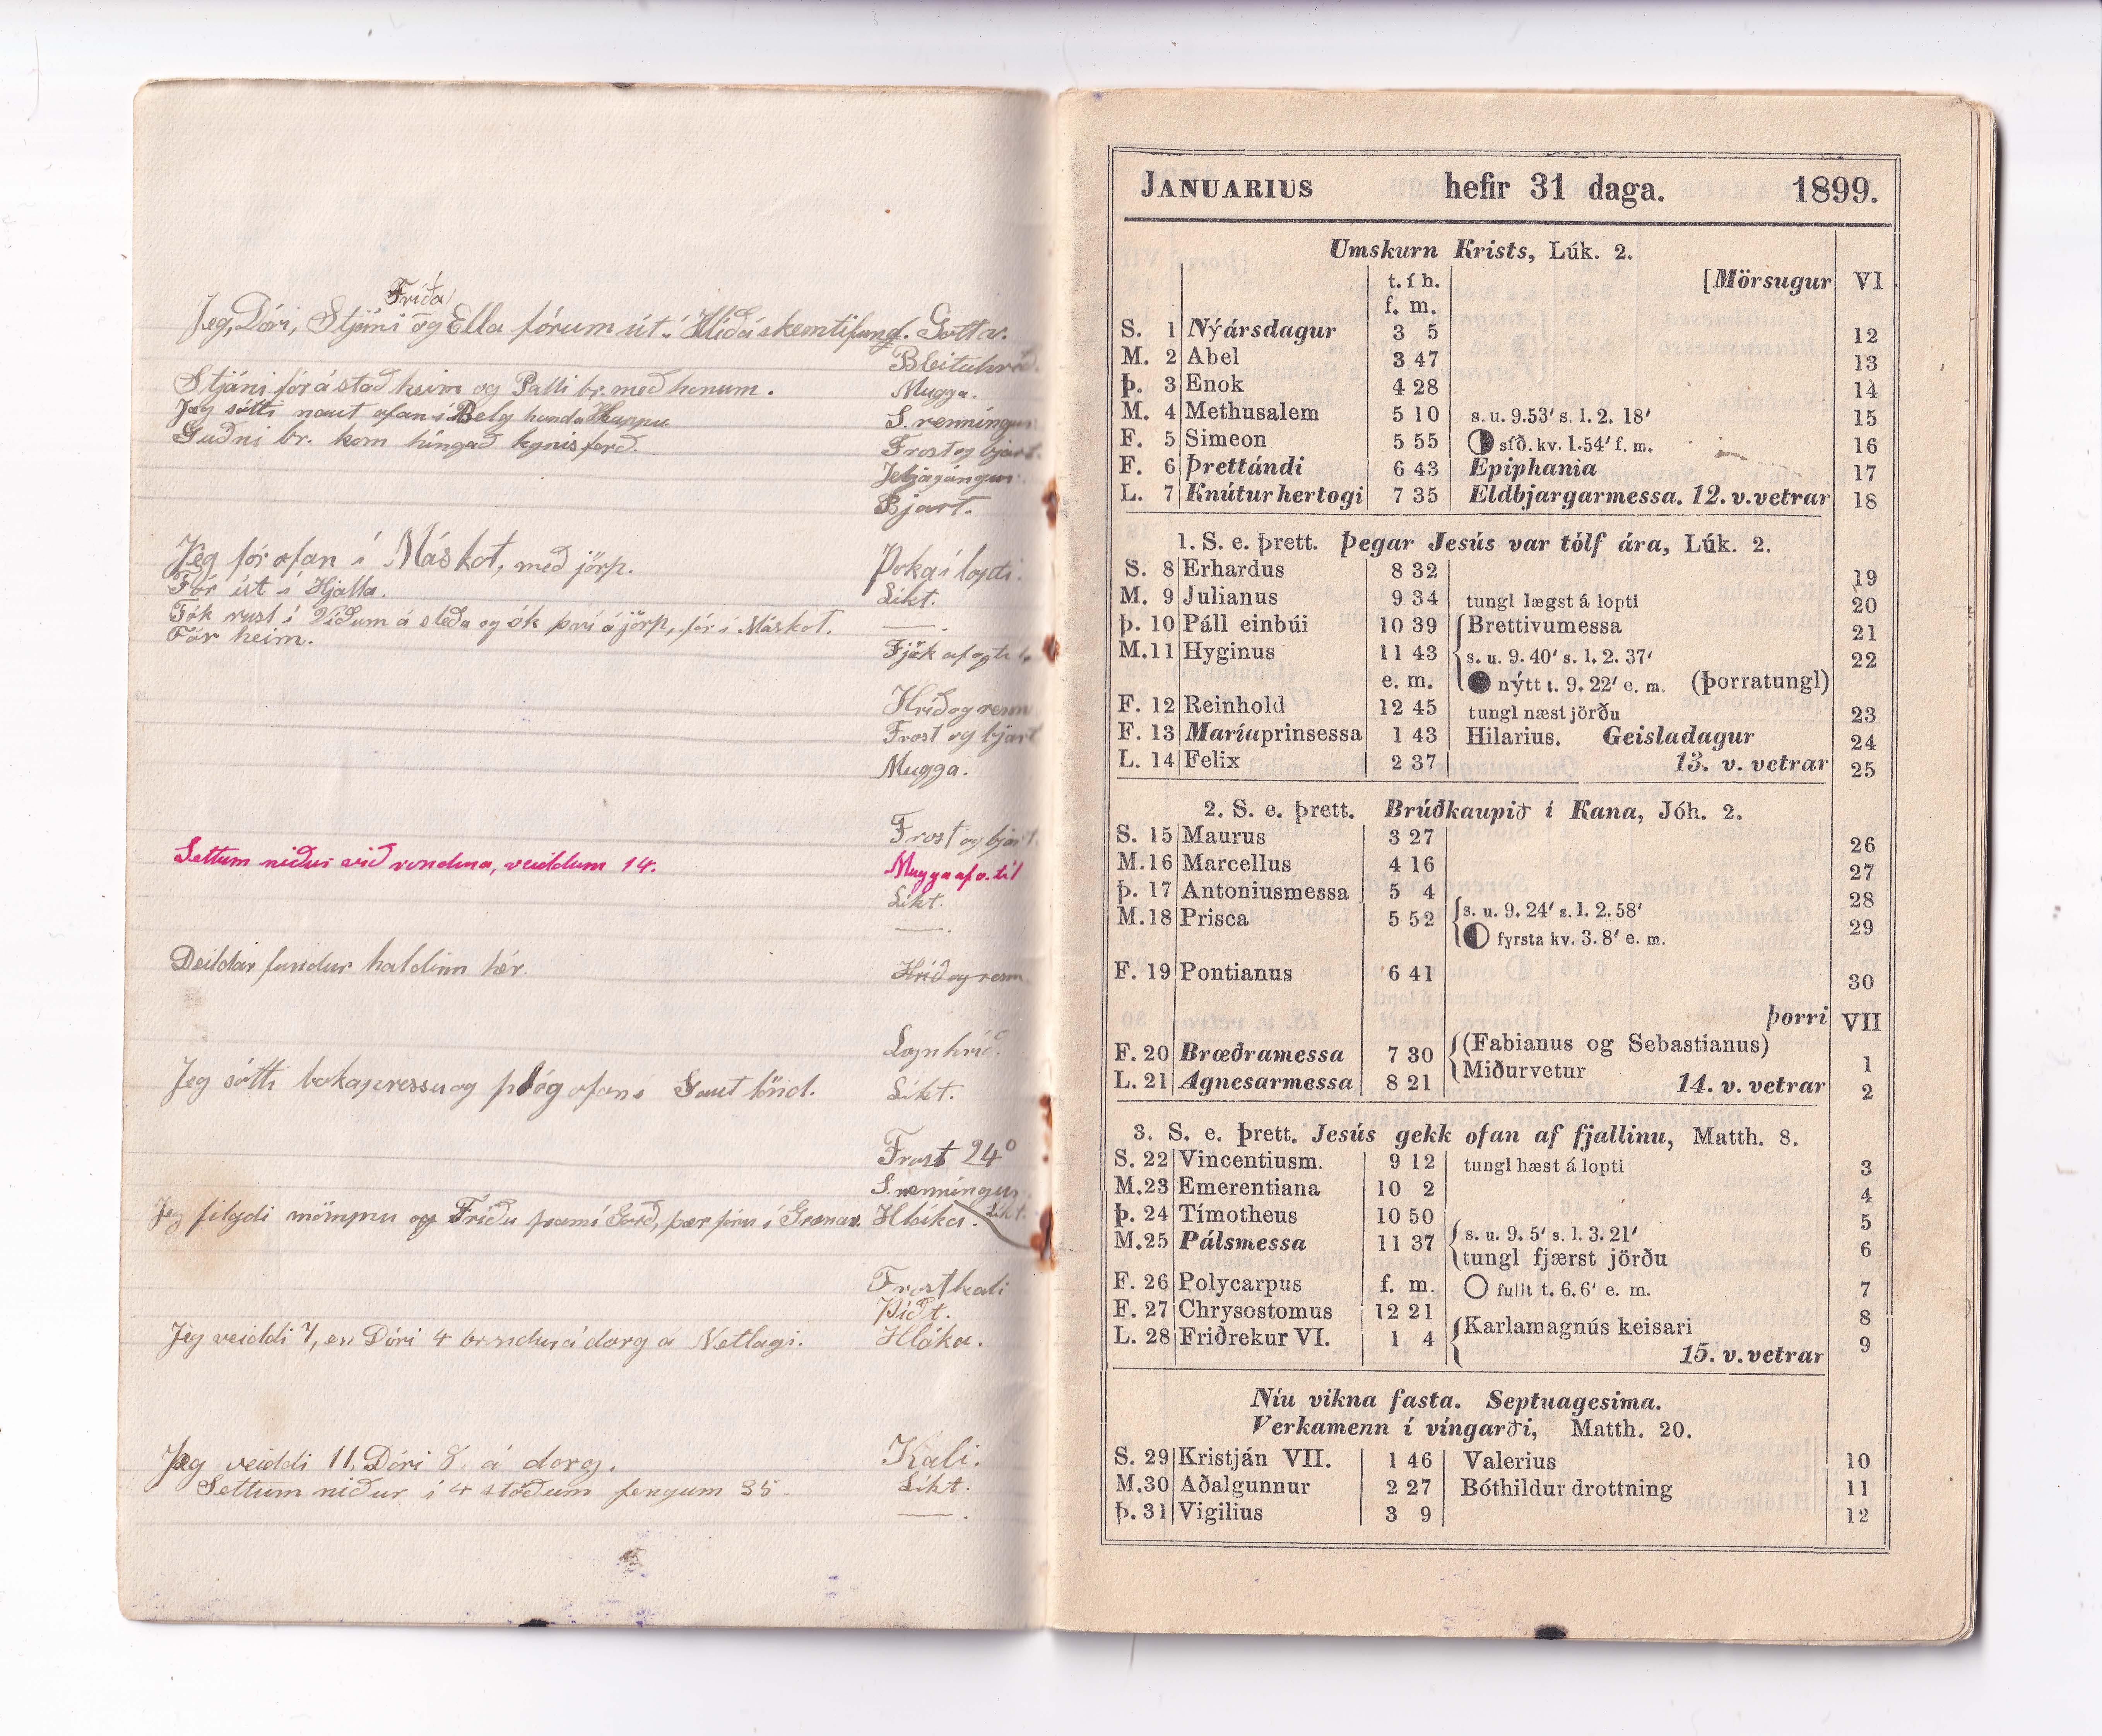 Fríða
Jeg, Dóri, Stjáni og Ella fórum út í Hlíð á skemtifund. Gott v.
Bleituhríð.
Stjáni fór á stað heim og Palli br. með honum. Mugga.
Jeg sótti naut ofan í Belg handa Skuppu S. renningur
Guðni br. kom hingað kynisferð. Frost og bjart.
Jeljagángur.
Bjart.
Jeg fór ofan í Máskot, með jörp. Þoka í lopti.
Fór út í Hjalla. Líkt.
Tók rust í Viðum á sleða og ók því á jörp, fór í Máskot. —.
Fór heim.
Fjúk af og til
Hríð og renn
Frost og bjart
Mugga.
Frost og bjart.
Settum niður við vondina, veiddum 14. Mugga af o. til
Líkt.
—.
Deildar fundur haldinn hér. Hríð og renn
Lognhríð.
Jeg sótti bokapressu og plóg ofan í Gaut lönd. Líkt.
Frost 24°
S. renningur
Jeg filgdi mömmu og Fríðu fram í Garð, þær fóru í Grænav. Hláka. Líkt.
Frostkali
Þítt.
Jeg veiddi 7, en Dóri 4 bröndur á dorg á Netlagi. Hláka.
Jeg veiddi 11, Dóri 8. á dorg. Kali.
Settum niður í 4 stöðum fengum 35 - Líkt.
—.
JANUARIUS hefir 31 daga. 1899.
Umskurn Krists, Lúk. 2.
t. í h. [Mörsugur VI
f. m.
S. 1 Nýársdagur 3 5 12
M. 2 Abel 3 47 13
Þ. 3 Enok 4 28 14
M. 4 Methusalem 5 10 s. u. 9.53′ s. l. 2. 18′ 15
F. 5 Simeon 5 55 síð. kv. 1.54′ f. m. 16
F. 6 Þrettándi 6 43 Epiphania 17
L. 7 Knútur hertogi 7 35 Eldbjargarmessa. 12. v. vetrar 18
1. S. e. Þrett. Þegar Jesús var tólf ára, Lúk. 2.
S. 8 Erhardus 8 32 19
M. 9 Julianus 9 34 tungl lægst á lopti 20
Þ. 10 Páll einbúi 10 39 Brettivumessa 21
M. 11 Hyginus 11 43 s. u. 9. 40′ s. l. 2. 37′ 22
e. m. nýtt t. 9. 22′ e. m. (Þorratungl)
F. 12 Reinhold 12 45 tungl næst jörðu 23
F. 13 Maríaprinsessa 1 43 Hilarius. Geisladagur 24
L. 14 Felix 2 37 13. v. vetrar 25
2. S. e. Þrett. Brúðkaupið í Kana, Jóh. 2.
S. 15 Maurus 3 27 26
M. 16 Marcellus 4 16 27
Þ. 17 Antoniusmessa 5 4 28
M. 18 Prisca 5 52 s. u. 9. 24′ s. l. 2. 58′ 29
fyrsta kv. 3. 8′ e. m.
F. 19 Pontianus 6 41 30
Þorri VII
F. 20 Bræðramessa 7 30 (Fabianus og Sebastianus) 1
L. 21 Agnesarmessa 8 21 Miðurvetur 14. v. vetrar 2
3. S. e. Þrett. Jesús gekk ofan af fjallinu, Matth. 8.
S. 22 Vincentiusm. 9 12 tungl hæst á lopti 3
M. 23 Emerentiana 10 2 4
Þ. 24 Tímotheus 10 50 5
M. 25 Pálsmessa 11 37 s. u. 9. 5′ s. l. 3. 21′ 6
tungl fjærst jörðu
F. 26 Polycarpus f. m. fullt t. 6. 6′ e. m. 7
F. 27 Chrysostomus 12 21 8
L. 28 Friðrekur VI. 1 4 Karlamagnús keisari 9
15. v. vetrar
Níu vikna fasta. Septuagesima.
Verkamenn í víngarði, Matth. 20.
S. 29 Kristján VII. 1 46 Valerius 10
M. 30 Aðalgunnur 2 27 Bóthildur drottning 11
Þ. 31 Vigilius 3 9 12